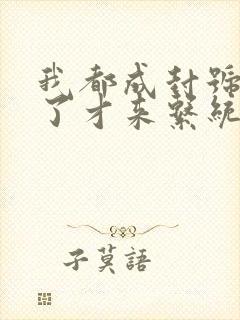 我都成封號
了才来繫統
子莫語